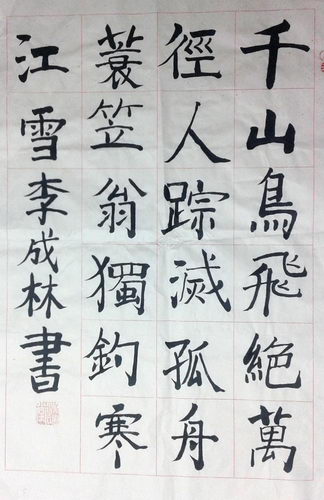 千山鳥飛絕萬
徑人踪滅孤舟
蓑笠翁獨釣寒
江雪李成林書